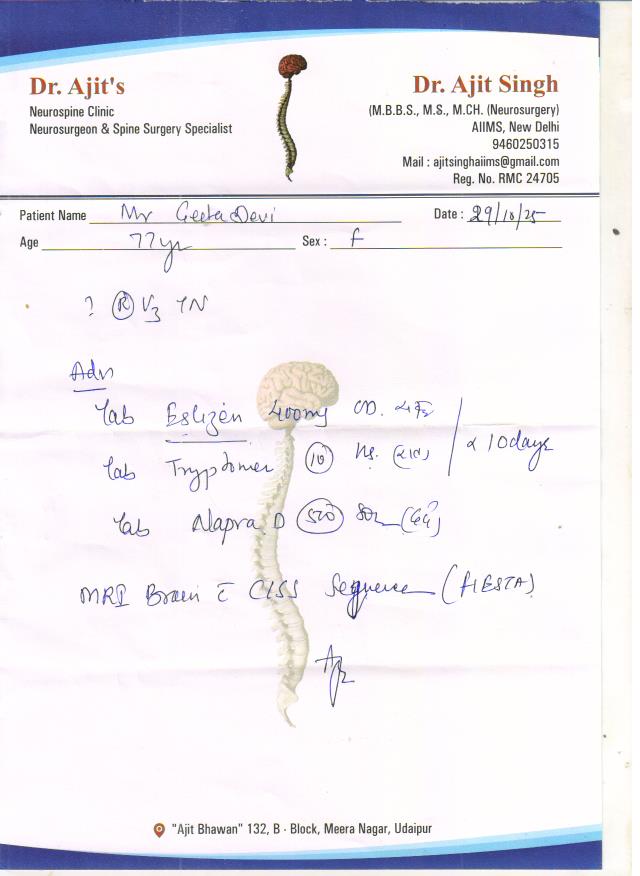 Dr. Ajit's
Neurospine Clinic
Neurosurgeon & Spine Surgery Specialist
Dr. Ajit Singh
(M.B.B.S., M.S., M.CH. (Neurosurgery)
AIIMS, New Delhi
9460250315
Mail : ajitsinghaiims@gmail.com
Reg. No. RMC 24705
Patient Name Mr Geeta Devi Date : 29/10/25
Age 77yr Sex : f
? (R) V3 TN
Adv
Tab Eslizen 400mg OD.
Tab Tryptomer (10) hs. x 10days
Tab Napra D (500) SOS
MRI Brain c̄ CISS Sequence (FIESTA)
"Ajit Bhawan" 132, B - Block, Meera Nagar, Udaipur